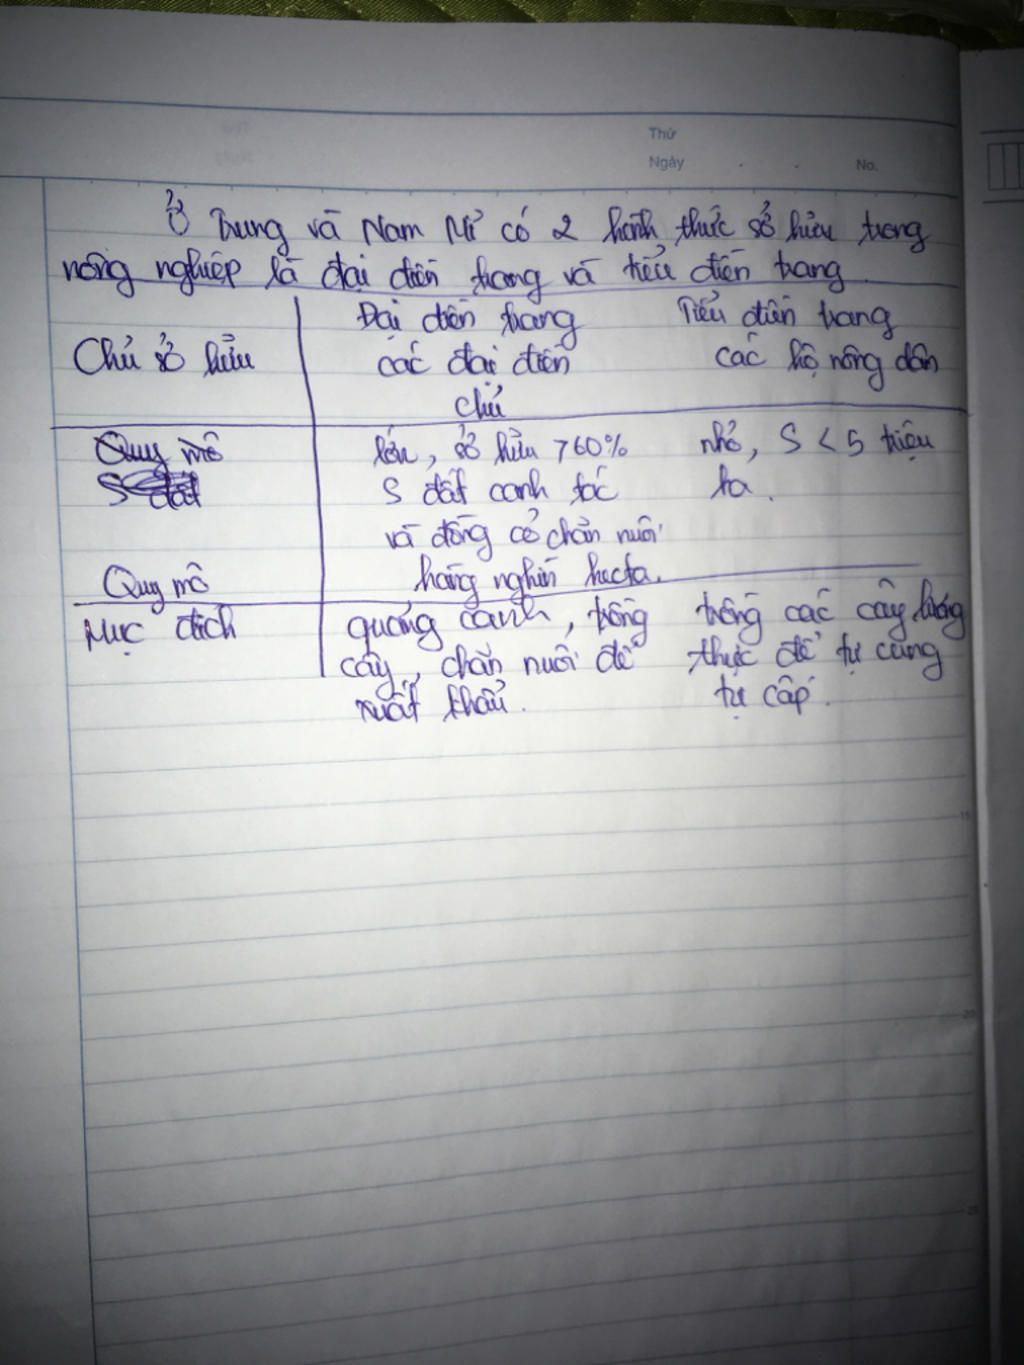 Thứ
Ngày . . No.
Ở Trung và Nam Mĩ có 2 hình thức sở hữu trong
nông nghiệp là đại điền trang và tiểu điền trang
Đại điền trang Tiểu điền trang
Chủ sở hữu các đại điền các hộ nông dân
chủ
Quy mô lớn, sở hữu >60% nhỏ, S < 5 triệu
S đất S đất canh tác ha.
và đồng cỏ chăn nuôi
Quy mô hàng nghìn hecta.
Mục đích quảng canh, trồng trồng các cây lương
cây, chăn nuôi để thực để tự cung
xuất khẩu. tự cấp.
15
20
25